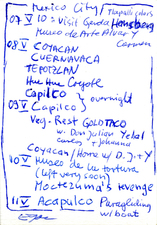 Mexico City
07 V 10: Visit Gerda Hansberg
Museo de Arte Alvar y Carmen
08 V COYACAN
CUERNAVACA
TEPOZTLAN
Hue Hue Coyotl
Capilco overnight
09 V Capilco
Veg. Rest GOLOTACO
w. Don Julian
Carlos + Johanna
Coyacan / Home w D. J. + Y
10 V Museo de la tortura
(left very soon)
Moctezuma's revenge
11 V Acapulco Paragliding
w/ boat